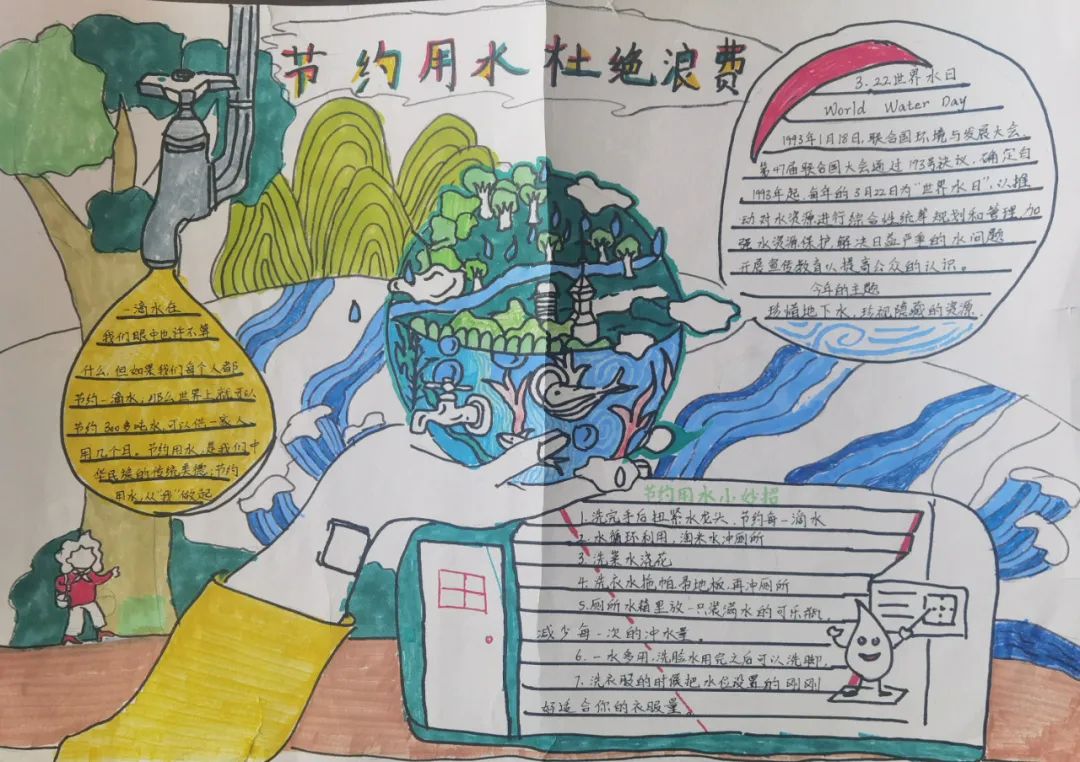 节约用水 杜绝浪费
3.22世界水日
World Water Day
1993年1月18日,联合国环境与发展大会、
第47届联合国大会通过193号决议,确定自
1993年起,每年的3月22日为"世界水日",以推
动对水资源进行综合性统筹规划和管理,加
强水资源保护,解决日益严重的水问题
开展宣传教育以提高公众的认识。
今年的主题
珍惜地下水,珍视隐藏的资源
一滴水在
我们眼中也许不算
什么,但如果我们每个人都
节约一滴水,那么世界上就可以
节约300多吨水,可以供一家人
用几个月。节约用水,是我们中
华民族的传统美德;节约
用水,从"我"做起
节约用水小妙招
1.洗完手后扭紧水龙头,节约每一滴水
2.水循环利用,淘米水冲厕所
3.洗菜水浇花
4.洗衣水拖帕吊地板,再冲厕所
5.厕所水箱里放一只装满水的可乐瓶,
减少每一次的冲水量。
6.一水多用,洗脸水用完之后可以洗脚,
7.洗衣服的时候把水位设置的刚刚
好适合你的衣服量。